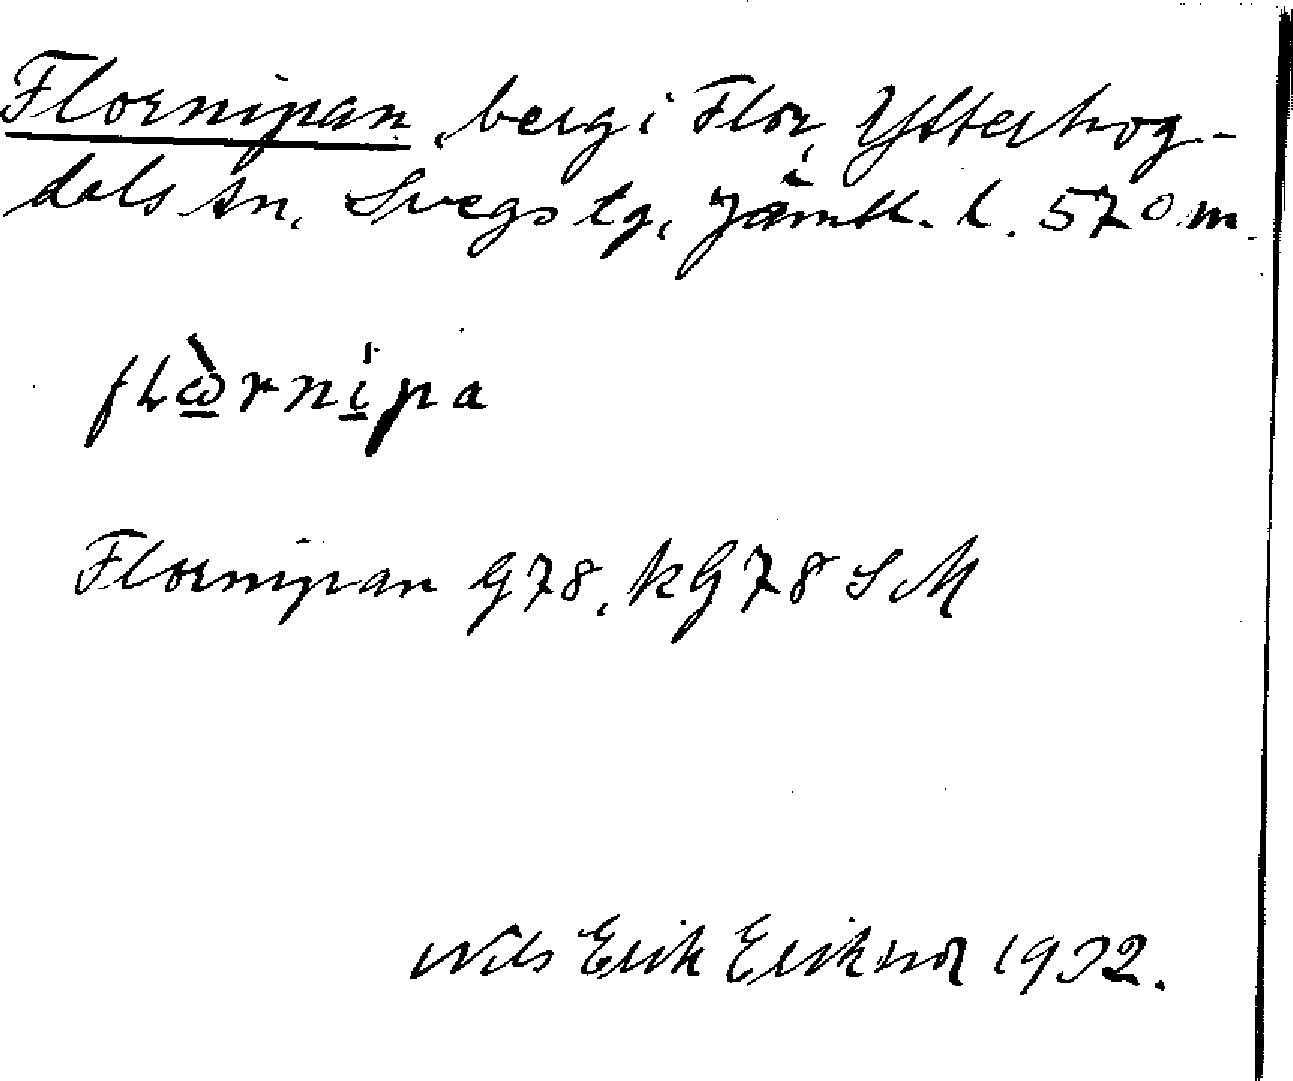 Flornipan, berg i Flor, Ytterhog-
dals sn, Svegs tg, Jämtl. l. 570 m.
flὼ̲rní̲pa
Flornipan G78, kG78 SM
Nils Erik Eriksson 1932.